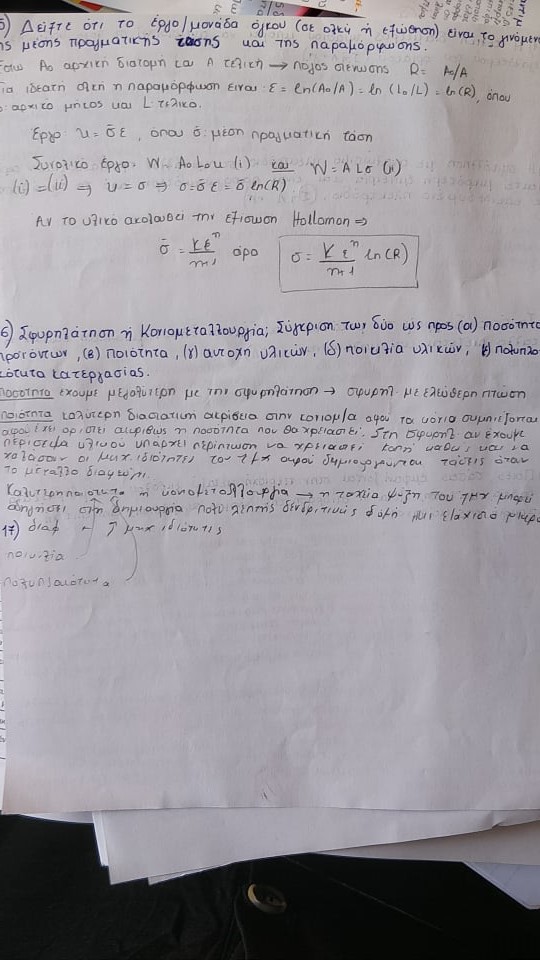 5) Δείξτε ότι το έργο/μονάδα όγκου (σε ολκή ή εξώθηση) είναι το γινόμενο
της μέσης πραγματικής τάσης και της παραμόρφωσης.
Έστω Αο αρχική διατομή και Α τελική → λόγος στένωσης R = Ao/A
Για ιδεατή ολκή η παραμόρφωση είναι: ε = ln(Ao/A) = ln(Lo/L) = ln(R), όπου
Lo: αρχικό μήκος και L: τελικό.
Έργο u = σ̄ ε, όπου σ̄: μέση πραγματική τάση
Συνολικό έργο: W = Ao Lo u (i) και W = A L σ (ii)
(i) = (ii) ⇒ u = σ ⇒ σ = σ̄ ε = σ̄ ln(R)
Αν το υλικό ακολουθεί την εξίσωση Hollomon ⇒
σ̄ = Kε^n / n+1 άρα σ = K ε^n / n+1 ln(R)
6) Σφυρηλάτηση ή Κονιομεταλλουργία; Σύγκριση των δύο ως προς (α) ποσότητα
προϊόντων, (β) ποιότητα, (γ) αντοχή υλικών, (δ) ποικιλία υλικών, (ε) πολυπλο-
κότητα κατεργασίας.
Ποσότητα έχουμε μεγαλύτερη με την σφυρηλάτηση → σφυρηλ με ελεύθερη πτώση
Ποιότητα καλύτερη διαστατική ακρίβεια στην κονιομ/α αφού τα κόνια συμπιέζονται
αφού έχει οριστεί ακριβώς η ποσότητα που θα χρειαστεί. Στη σφυρηλ αν έχουμε
περίσσεμα υλικού υπάρχει περίπτωση να χρειαστεί κοπή καθώς και να
χαλάσουν οι μηχ ιδιότητες του τμχ αφού δημιουργούνται τάσεις όταν
το μέταλλο
Καλύτερη ποιότητα η κονιομεταλλουργία → η ταχεία ψύξη του τμχ μπορεί
οδηγήσει στη δημιουργία πολύ λεπτής δενδριτικής δομή με ελάχιστο
17) διαφ ↑ μηχ ιδιότητες
ποικιλία
πολυπλοκότητα